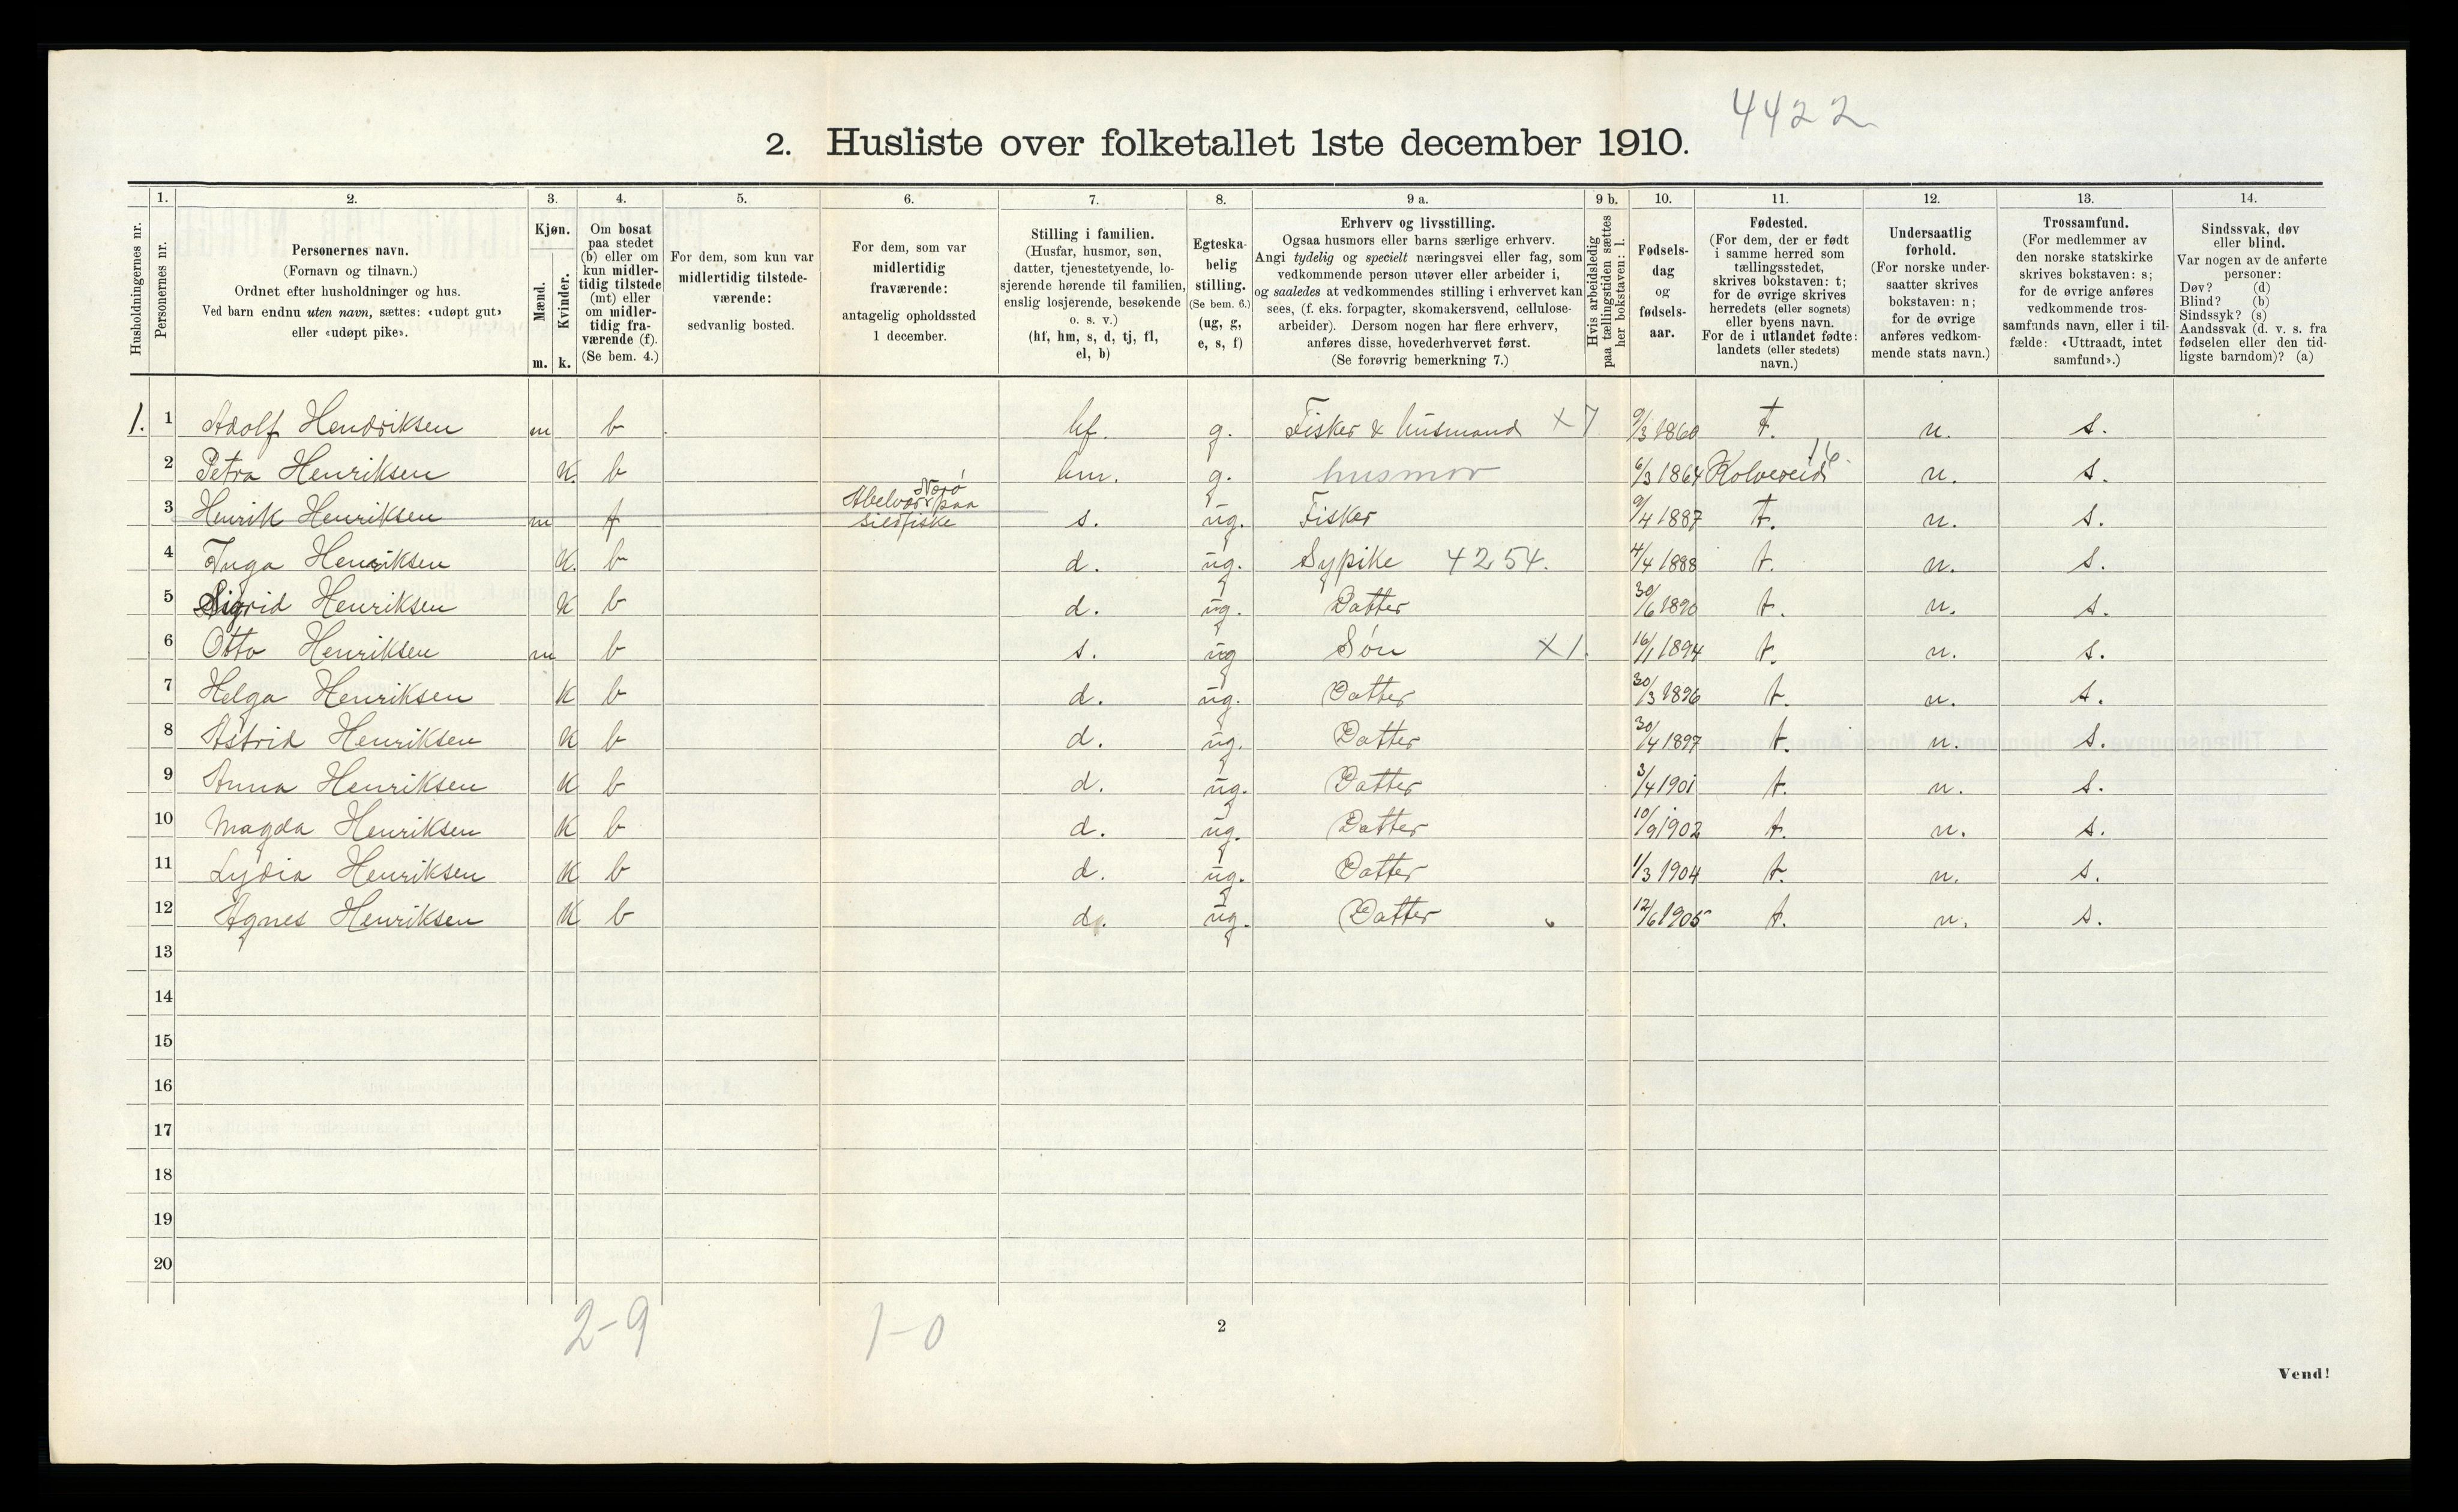 4422
2. Husliste over folketallet 1ste december 1910.
1. 2. 3. 4. 5. 6. 7. 8. 9 a. 9 b. 10. 11. 12. 13. 14.
Husholdningernes nr.
Personernes nr.
Personernes navn.
(Fornavn og tilnavn.)
Ordnet efter husholdninger og hus.
Ved barn endnu uten navn, sættes: «udøpt gut»
eller «udøpt pike».
Kjøn.
Mænd.
Kvinder.
m. k.
Om bosat
paa stedet
(b) eller om
kun midler-
tidig tilstede
(mt) eller
om midler-
tidig fra-
værende (f).
(Se bem. 4.)
For dem, som kun var
midlertidig tilstede-
værende:
sedvanlig bosted.
For dem, som var
midlertidig
fraværende:
antagelig opholdssted
1 december.
Stilling i familien.
(Husfar, husmor, søn,
datter, tjenestetyende, lo-
sjerende hørende til familien,
enslig losjerende, besøkende
o. s. v.)
(hf, hm, s, d, tj, fl,
el, b)
Egteska-
belig
stilling.
(Se bem. 6.)
(ug, g,
e, s, f)
Erhverv og livsstilling.
Ogsaa husmors eller barns særlige erhverv.
Angi tydelig og specielt næringsvei eller fag, som
vedkommende person utøver eller arbeider i,
og saaledes at vedkommendes stilling i erhvervet kan
sees, (f. eks. forpagter, skomakersvend, cellulose-
arbeider). Dersom nogen har flere erhverv,
anføres disse, hovederhvervet først.
(Se forøvrig bemerkning 7.)
Hvis arbeidsledig
paa tællingstiden sættes
her bokstaven: l.
Fødsels-
dag
og
fødsels-
aar.
Fødested.
(For dem, der er født
i samme herred som
tællingsstedet,
skrives bokstaven: t;
for de øvrige skrives
herredets (eller sognets)
eller byens navn.
For de i utlandet fødte:
landets (eller stedets)
navn.)
Undersaatlig
forhold.
(For norske under-
saatter skrives
bokstaven: n;
for de øvrige
anføres vedkom-
mende stats navn.)
Trossamfund.
(For medlemmer av
den norske statskirke
skrives bokstaven: s;
for de øvrige anføres
vedkommende tros-
samfunds navn, eller i til-
fælde: «Uttraadt, intet
samfund».)
Sindssvak, døv
eller blind.
Var nogen av de anførte
personer:
Døv? (d)
Blind? (b)
Sindssyk? (s)
Aandssvak (d. v. s. fra
fødselen eller den tid-
ligste barndom)? (a)
1. 1 Adolf Hendriksen m b hf. g. Fisker & husmand X7 9/3 1860 t. n. s.
2 Petra Henriksen k. b hm. g. husmor 6/3 1864 Kolvereid n. s.
3 Henrik Henriksen m f Abelvær Nærø paa sildfiske s. ug. Fisker 9/4 1887 t. n. s.
4 Inga Henriksen k. b d. ug. Sypike 4254. 4/4 1888 t. n. s.
5 Sigrid Henriksen k b d. ug. Datter 30/6 1890 t. n. s.
6 Otto Henriksen m b s. ug Søn X1. 16/1 1894 t. n. s.
7 Helga Henriksen k b d. ug. Datter 30/3 1896 t. n. s.
8 Astrid Henriksen k b d. ug. Datter 30/4 1897 t. n. s.
9 Anna Henriksen k b d. ug. Datter 3/4 1901 t. n. s.
10 Magda Henriksen k b d. ug. Datter 10/9 1902 t. n. s.
11 Lydia Henriksen k b d. ug. Datter 1/3 1904 t. n. s.
12 Agnes Henriksen k b d. ug. Datter 12/6 1905 t. n. s.
13
14
15
16
17
18
19
20
2-9 1-0
2
Vend!